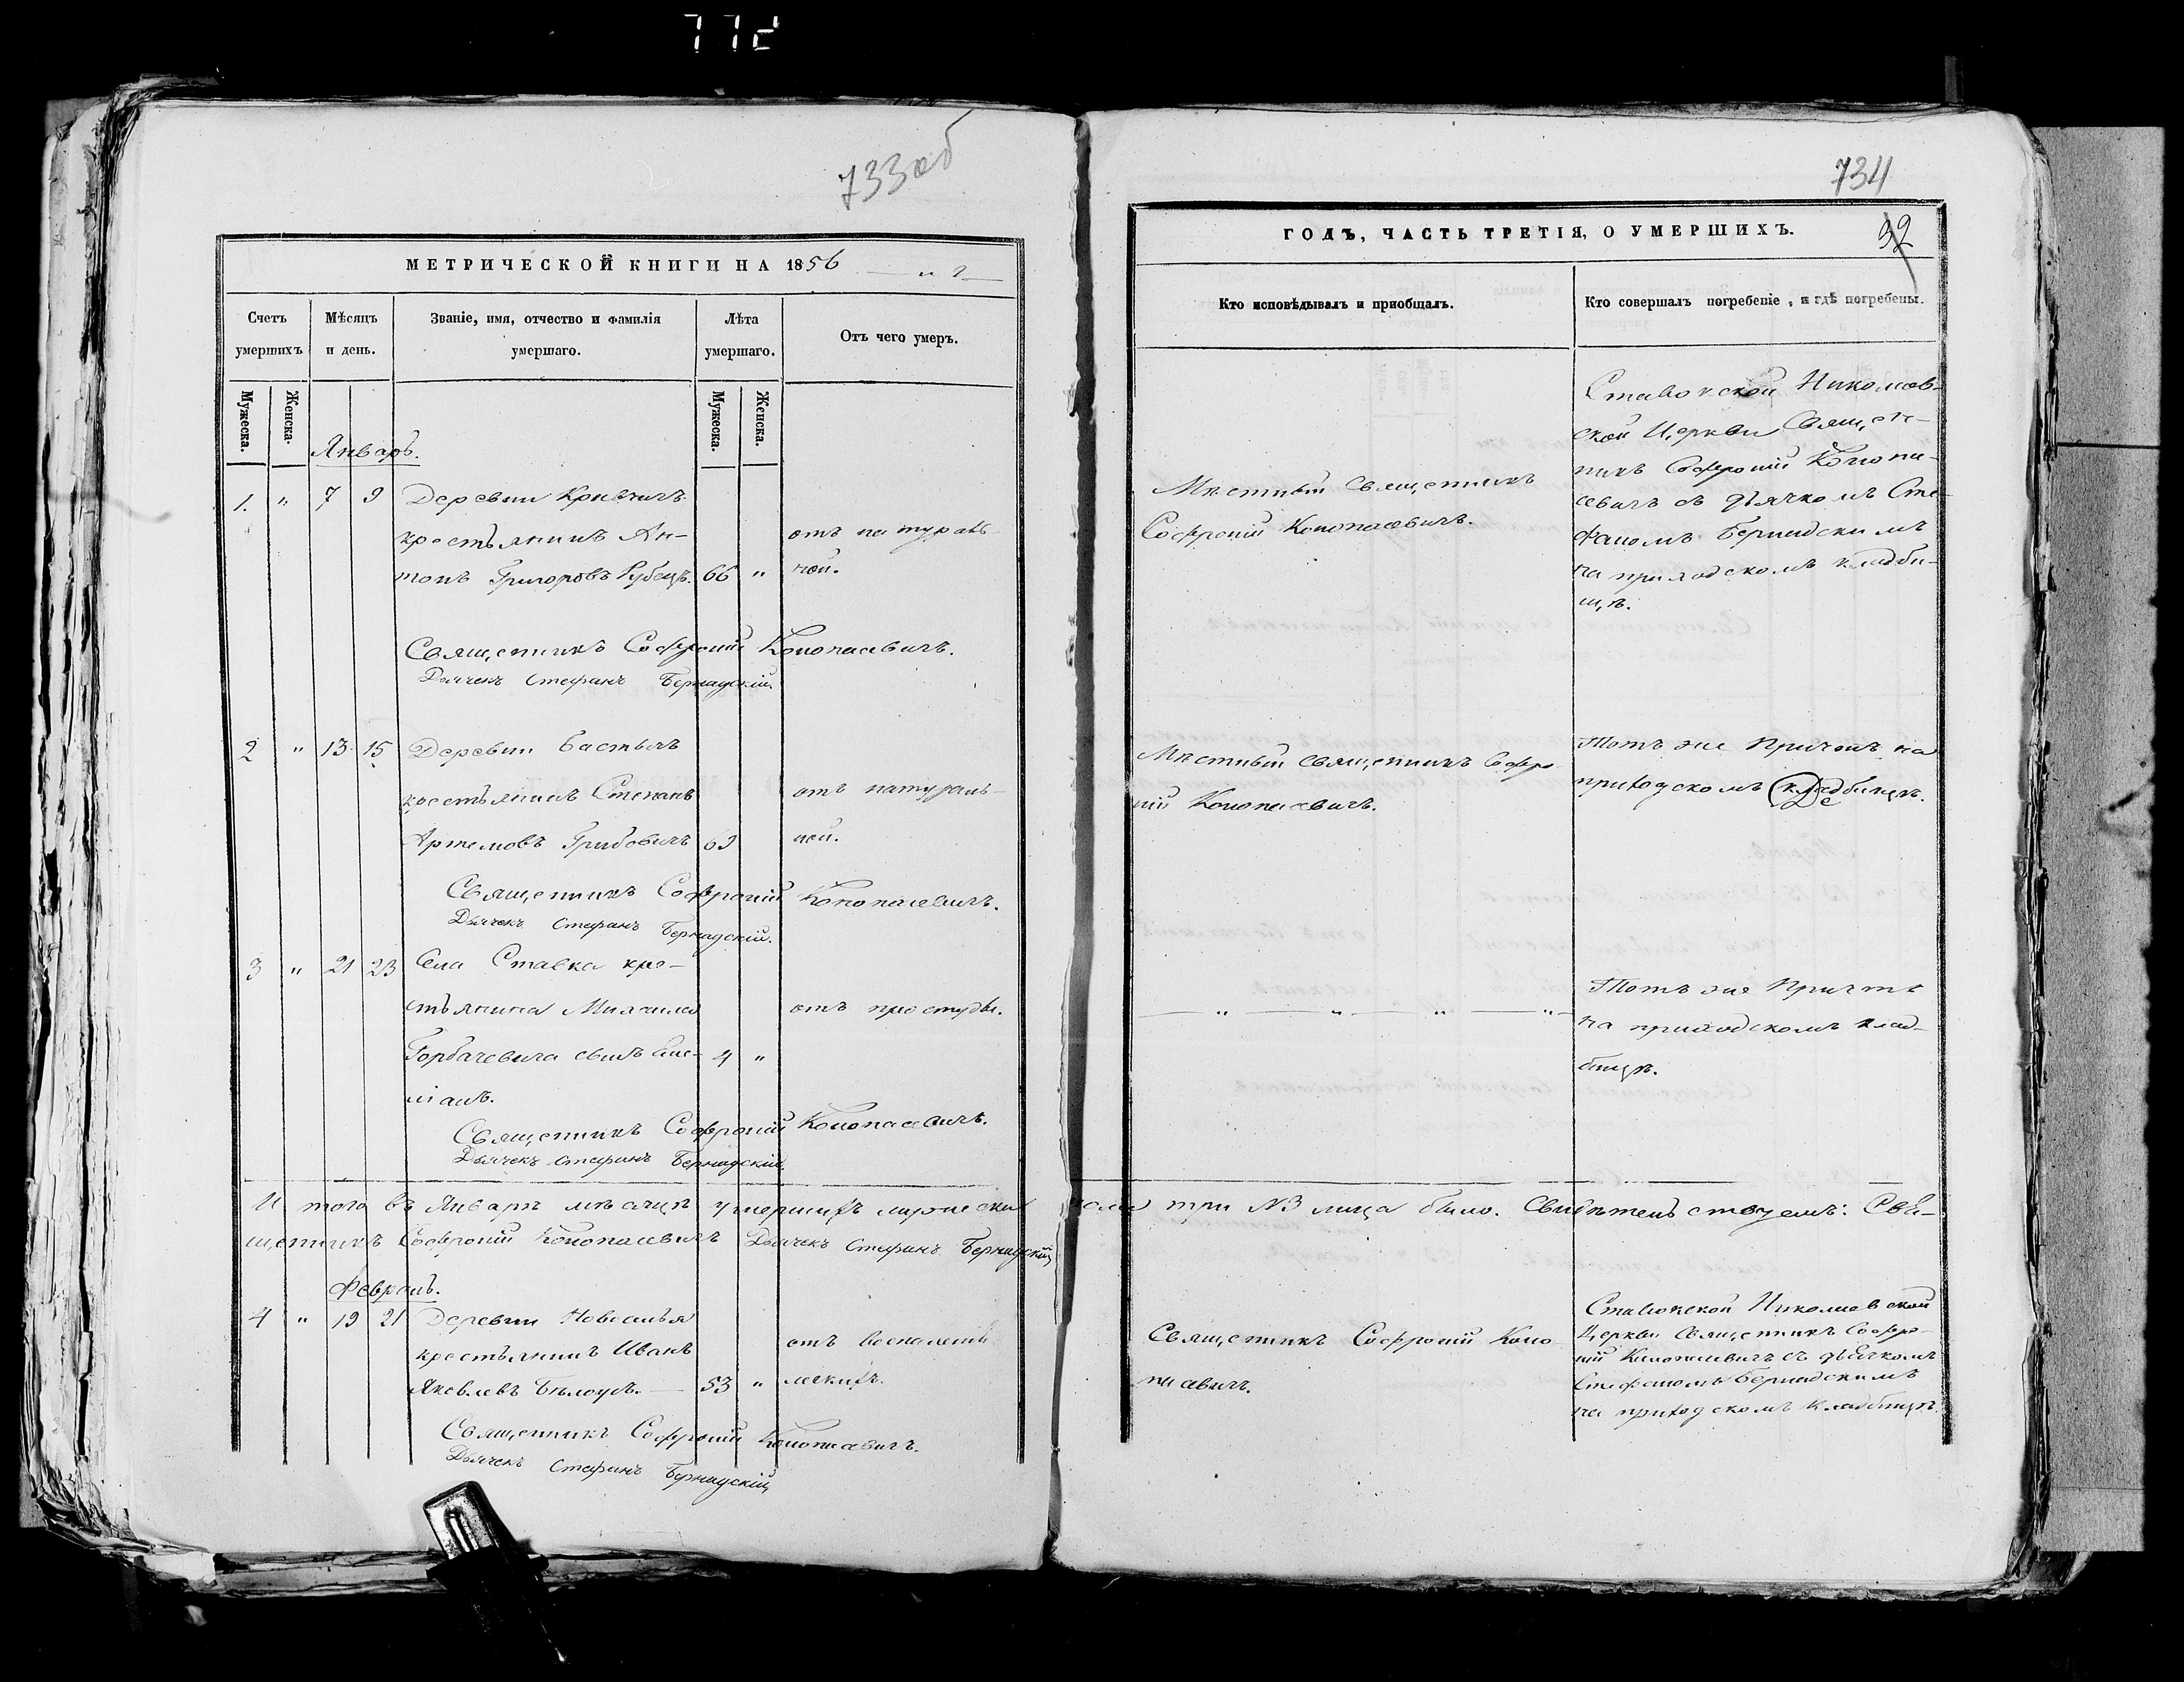 772
733об
МЕТРИЧЕСКОЙ КНИГИ НА 1856
Счетъ умершихъ
Мѣсяцъ и день.
Званіе, имя, отчество и фамилія умершаго.
Лѣта умершаго.
Отъ чего умеръ.
Мужеска.
Женска.
Мужеска.
Женска.
Январь.
1. " 7 9 Деревни Кривичъ
крестьянинъ Ан-
тонъ Григоровъ Рубецъ. 66 "
отъ натураль-
ной.
Священникъ Софроній Конопасевичъ.
Дьячекъ Стефанъ Бернадскій.
2 " 13 15 Деревни
крестьянинъ Степанъ
Артемовъ Грибовичъ 69
отъ натураль-
ной.
Священникъ Софроній Конопасевичъ.
Дьячекъ Стефанъ Бернадскій.
3 " 21 23 Села Ставка кре-
стьянина Михаила
Горбачевича сынъ 4 "
отъ простуды.
Священникъ Софроній Конопасевичъ.
Дьячекъ Стефанъ Бернадскій.
И того въ Январѣ мѣсяцѣ умершихъ мужеска
пола три №3 лица было. Свидѣтельствуемъ: Свя-
щенникъ Софроній Конопасевичъ Дьячекъ Стефанъ Бернадскій
Февраль.
4 " 19 21 Деревни Новоселья
крестьянинъ Иванъ
Яковлевъ Бѣлоусъ. — 53 "
отъ воспаленія
легкихъ.
Священникъ Софроній Конопасевичъ.
Дьячекъ Стефанъ Бернадскій
734
92
ГОДЪ, ЧАСТЬ ТРЕТІЯ, О УМЕРШИХЪ.
Кто исповѣдывалъ и пріобщалъ.
Кто совершалъ погребеніе, и гдѣ погребены.
Мѣстный Священникъ
Софроній Конопасевичъ.
Ставокской Николаев-
ской Церкви Священ-
никъ Софроній Конопа-
севичъ съ дьячкомъ Сте-
фаномъ Бернадскимъ
на приходскомъ кладби-
щѣ.
Мѣстный священникъ Софро
ній Конопасевичъ.
Тотъ же Причетъ на
приходскомъ кладбищѣ.
— " — " — " — " —
Тотъ же Причтъ
на приходскомъ клад-
бищѣ.
Священникъ Софроній Коно
пасевичъ.
Ставокской Николаевской
Церкви Священникъ Софро-
ній Конопасевичъ съ дьячкомъ
Стефаномъ Бернадскимъ
на приходскомъ кладбищѣ.